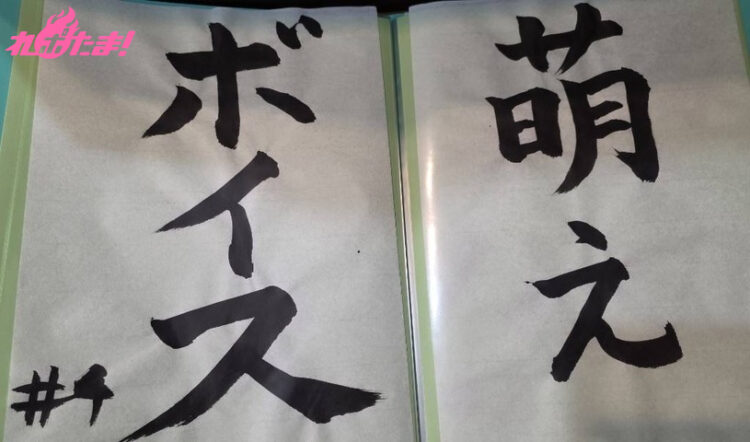 れだたま!
萌え
ボイス
#4